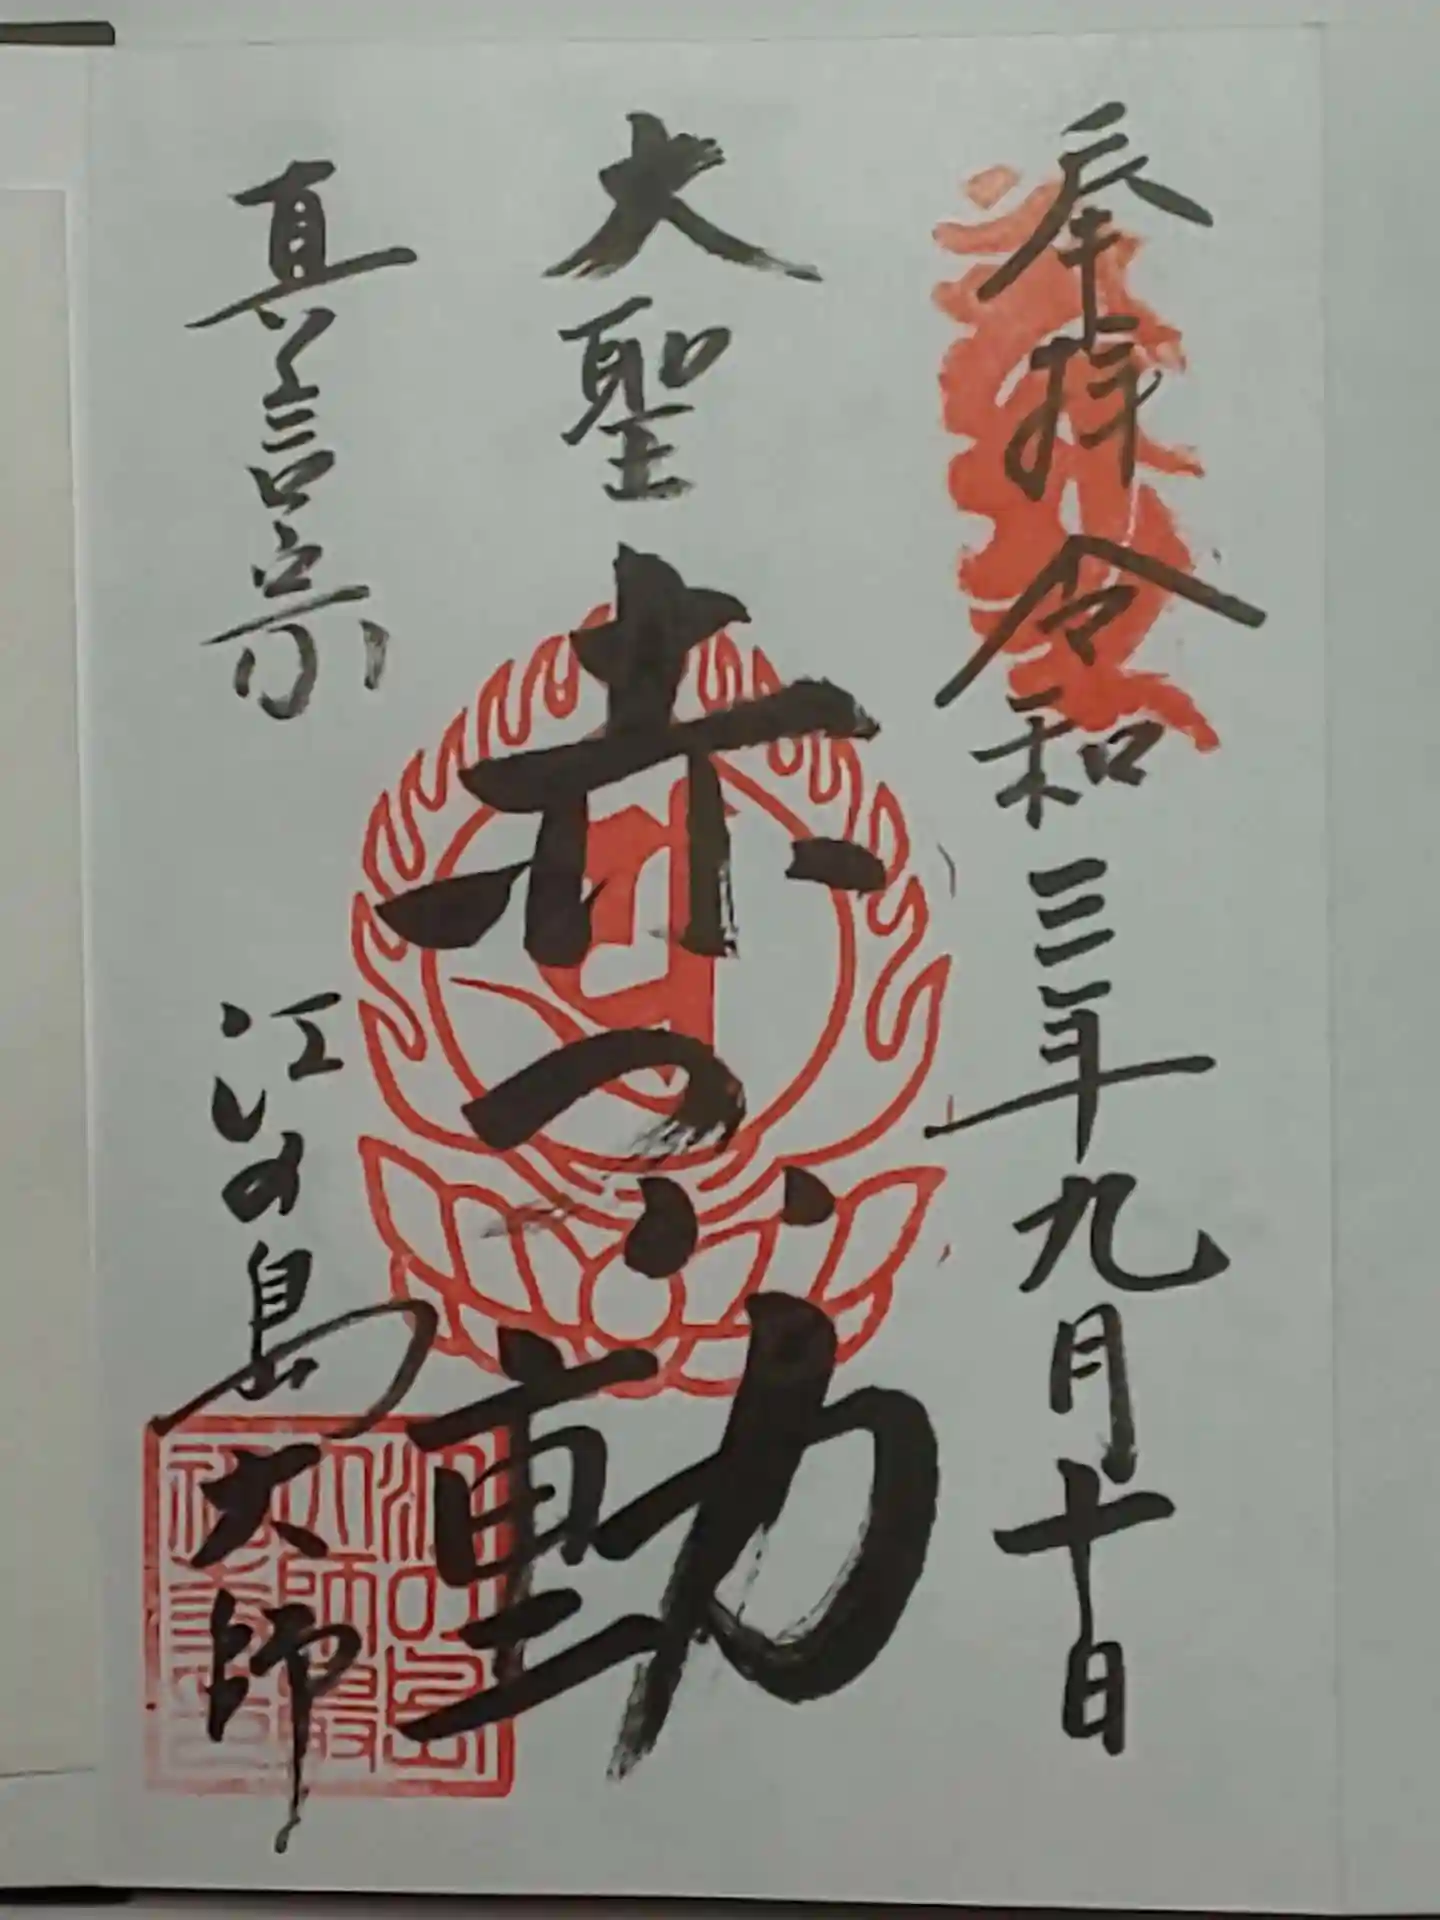 奉拝 令和三年九月十日
大聖 赤不動
真言宗 江の島大師